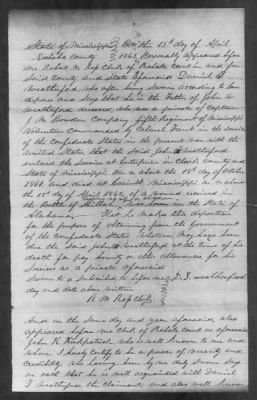 State of Mississippi } On this 13th day of April
Neshoba County } 1863 Personally appeared before
me Robert M. Ross Clerk of Probate Court in and for
Said County and State aforesaid Daniel I.
Weatherford, who after being sworn according to law
deposes and says that he is the Father of John
Weatherford deceased, who was a private of Captain
J M Bowden Company fifth Regiment of Mississippi
Volunteer Commanded by Colonel Fant in the service
of the Confederate States in the present war with the
United States, that the said John Weatherford
entered the service at Enterprise in Clark county and
State of Mississippi on or about the 18th day of October
1861 and died at Corinth Mississippi on or about
the 15th day of April 1862, of a wound received in
the battle of Shiloh was born in the State of
Alabama. That he makes this deposition
for the purpose of obtaining from the Government
of the Confederate States whatever may have been
due the said John Weatherford at the time of his
death for pay bounty or other allowances for his
services as a private aforesaid
Sworn to & Subscribed to before me } D. I. Weatherford
day and date above written
R M Ross Clerk
And on the same day and year aforesaid, also
appeared before me Clerk of Probate court as aforesaid
John R. Kirkpatrick who is well known to me and
whom I hereby Certify to be a person of veracity and
Credibility, who having been by me duly sworn says
on oath that he is well acquainted with Daniel
I Weatherford the Claimant; and also well knew